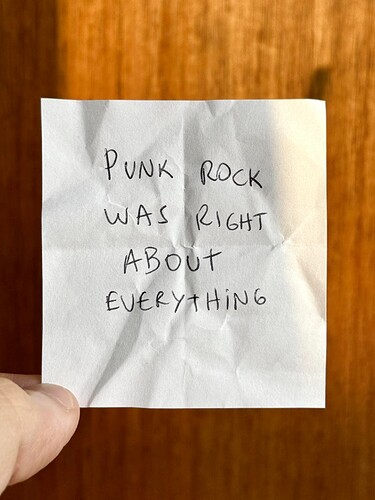 PUNK ROCK
WAS RIGHT
ABOUT
EVERYTHING